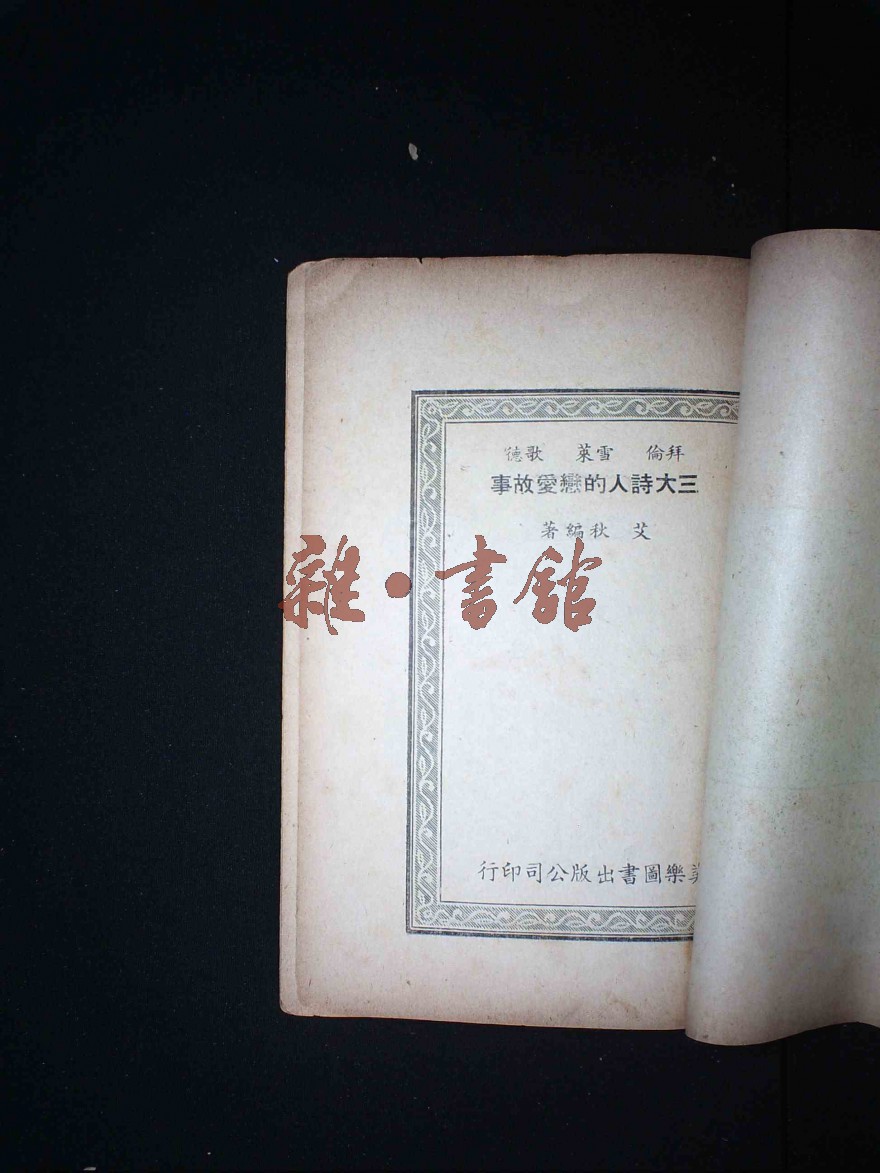 拜倫 雪萊 歌德
三大詩人的戀愛故事
艾秋編著
雜·書館
樂圖書出版公司印行